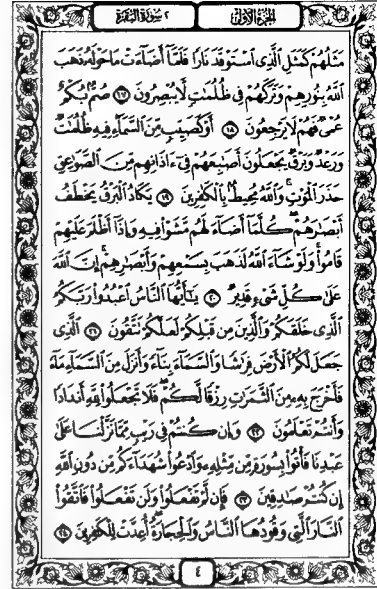 الجزء الأول
٢ سورة البقرة
مَثَلُهُمْ كَمَثَلِ الَّذِى اسْتَوْقَدَ نَارًا فَلَمَّآ أَضَآءَتْ مَا حَوْلَهُ ذَهَبَ
اللَّهُ بِنُورِهِمْ وَتَرَكَهُمْ فِى ظُلُمَٰتٍ لَّا يُبْصِرُونَ ١٧ صُمٌّ بُكْمٌ
عُمْىٌ فَهُمْ لَا يَرْجِعُونَ ١٨ أَوْ كَصَيِّبٍ مِّنَ السَّمَآءِ فِيهِ ظُلُمَٰتٌ
وَرَعْدٌ وَبَرْقٌ يَجْعَلُونَ أَصَٰبِعَهُمْ فِىٓ ءَاذَانِهِم مِّنَ الصَّوَٰعِقِ
حَذَرَ الْمَوْتِ وَاللَّهُ مُحِيطٌۢ بِالْكَٰفِرِينَ ١٩ يَكَادُ الْبَرْقُ يَخْطَفُ
أَبْصَٰرَهُمْ كُلَّمَآ أَضَآءَ لَهُم مَّشَوْا۟ فِيهِ وَإِذَآ أَظْلَمَ عَلَيْهِمْ
قَامُوا۟ وَلَوْ شَآءَ اللَّهُ لَذَهَبَ بِسَمْعِهِمْ وَأَبْصَٰرِهِمْ إِنَّ اللَّهَ
عَلَىٰ كُلِّ شَىْءٍ قَدِيرٌ ٢٠ يَٰٓأَيُّهَا النَّاسُ اعْبُدُوا۟ رَبَّكُمُ
الَّذِى خَلَقَكُمْ وَالَّذِينَ مِن قَبْلِكُمْ لَعَلَّكُمْ تَتَّقُونَ ٢١ الَّذِى
جَعَلَ لَكُمُ الْأَرْضَ فِرَٰشًا وَالسَّمَآءَ بِنَآءً وَأَنزَلَ مِنَ السَّمَآءِ مَآءً
فَأَخْرَجَ بِهِۦ مِنَ الثَّمَرَٰتِ رِزْقًا لَّكُمْ فَلَا تَجْعَلُوا۟ لِلَّهِ أَندَادًا
وَأَنتُمْ تَعْلَمُونَ ٢٢ وَإِن كُنتُمْ فِى رَيْبٍ مِّمَّا نَزَّلْنَا عَلَىٰ
عَبْدِنَا فَأْتُوا۟ بِسُورَةٍ مِّن مِّثْلِهِۦ وَادْعُوا۟ شُهَدَآءَكُم مِّن دُونِ اللَّهِ
إِن كُنتُمْ صَٰدِقِينَ ٢٣ فَإِن لَّمْ تَفْعَلُوا۟ وَلَن تَفْعَلُوا۟ فَاتَّقُوا۟
النَّارَ الَّتِى وَقُودُهَا النَّاسُ وَالْحِجَارَةُ أُعِدَّتْ لِلْكَٰفِرِينَ ٢٤
٤